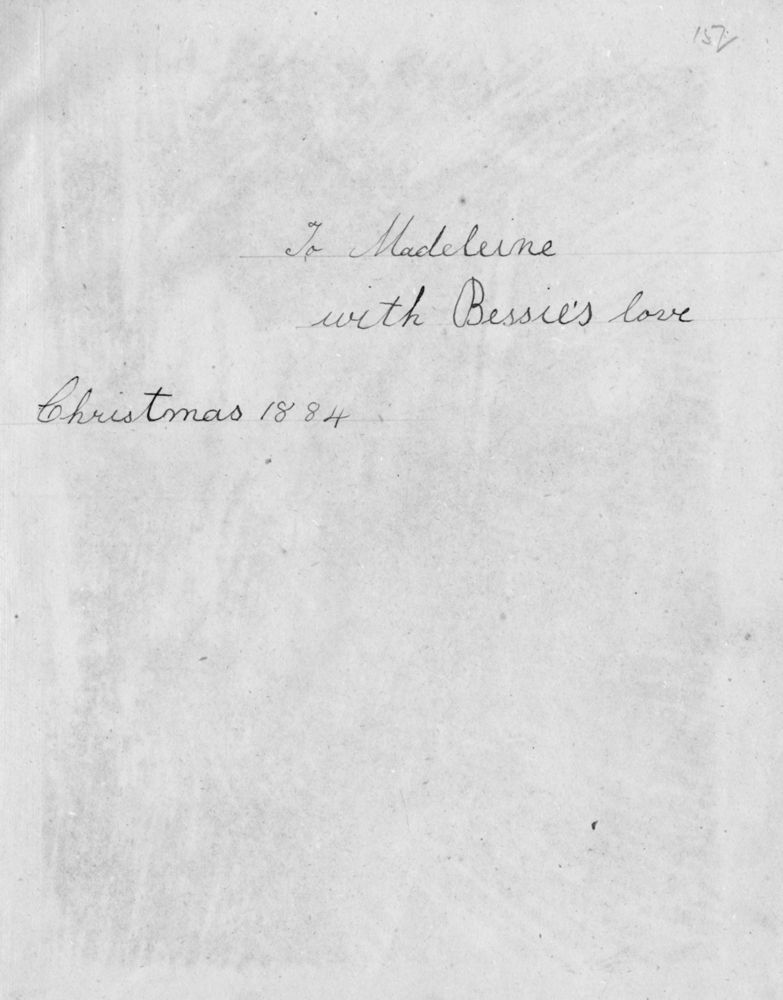 To Madeleine
with Bessie's love
Christmas 1884